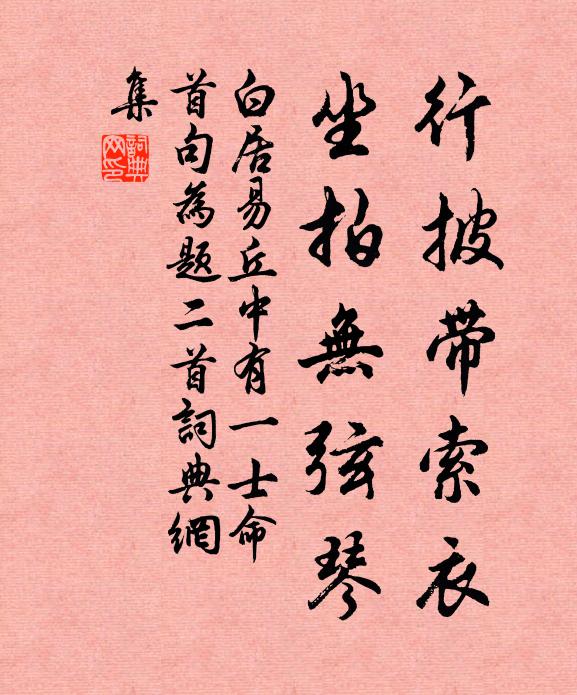 行披帶索衣
坐拍無弦琴
白居易丘中有一士命
首句為題二首詞典網
集
詞典
网印